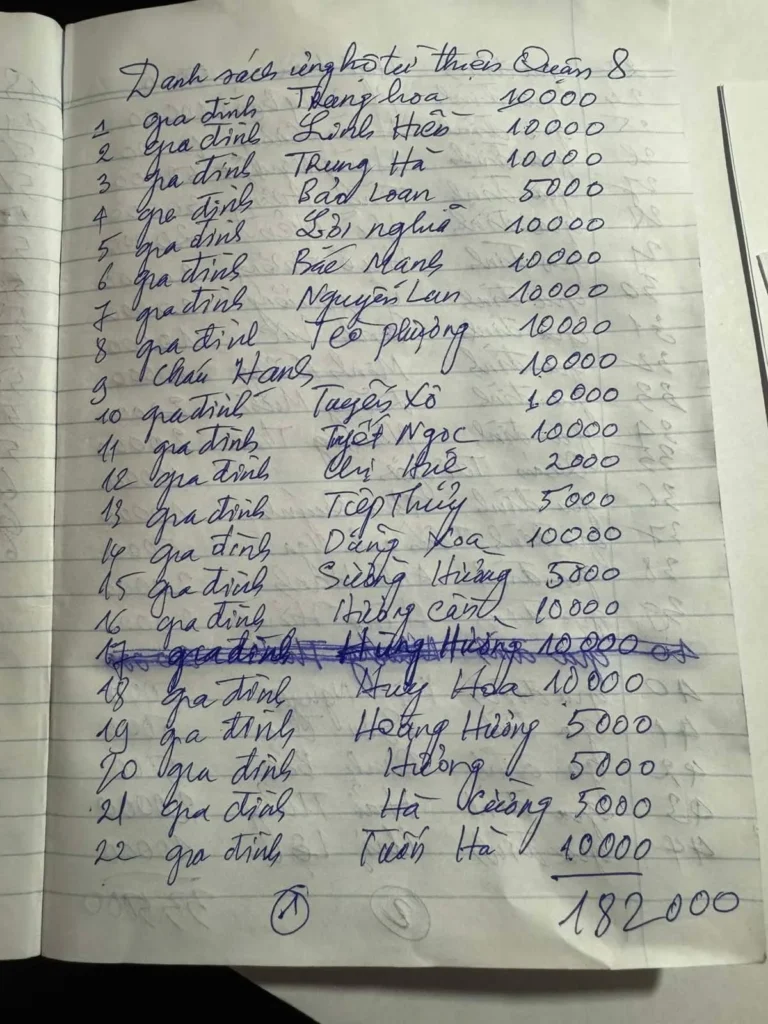 Danh sách ủng hộ từ thiện Quận 8
1 gia đình Trang hoa 10000
2 gia đình Linh Hiền 10000
3 gia đình Trung Hà 10000
4 gia đình Bảo Loan 5000
5 gia đình Lợi nghĩa 10000
6 gia đình Bắc Mạnh 10000
7 gia đình Nguyễn Lan 10000
8 gia đình Tẹo phượng 10000
9 Cháu Hạnh 10000
10 gia đình Tuyến Xô 10000
11 gia đình Tuyết Ngọc 10000
12 gia đình Chị Huê 2000
13 gia đình Tiếp Thủy 5000
14 gia đình Dũng Xoa 10000
15 gia đình Sường Hường 5000
16 gia đình Hường Cần 10000
17 gia đình Hùng Hường 10000
18 gia đình Huy Hoa 10000
19 gia đình Hoàng Hường 5000
20 gia đình Hường 5000
21 gia đình Hà Cường 5000
22 gia đình Tuấn Hà 10000
182000
1